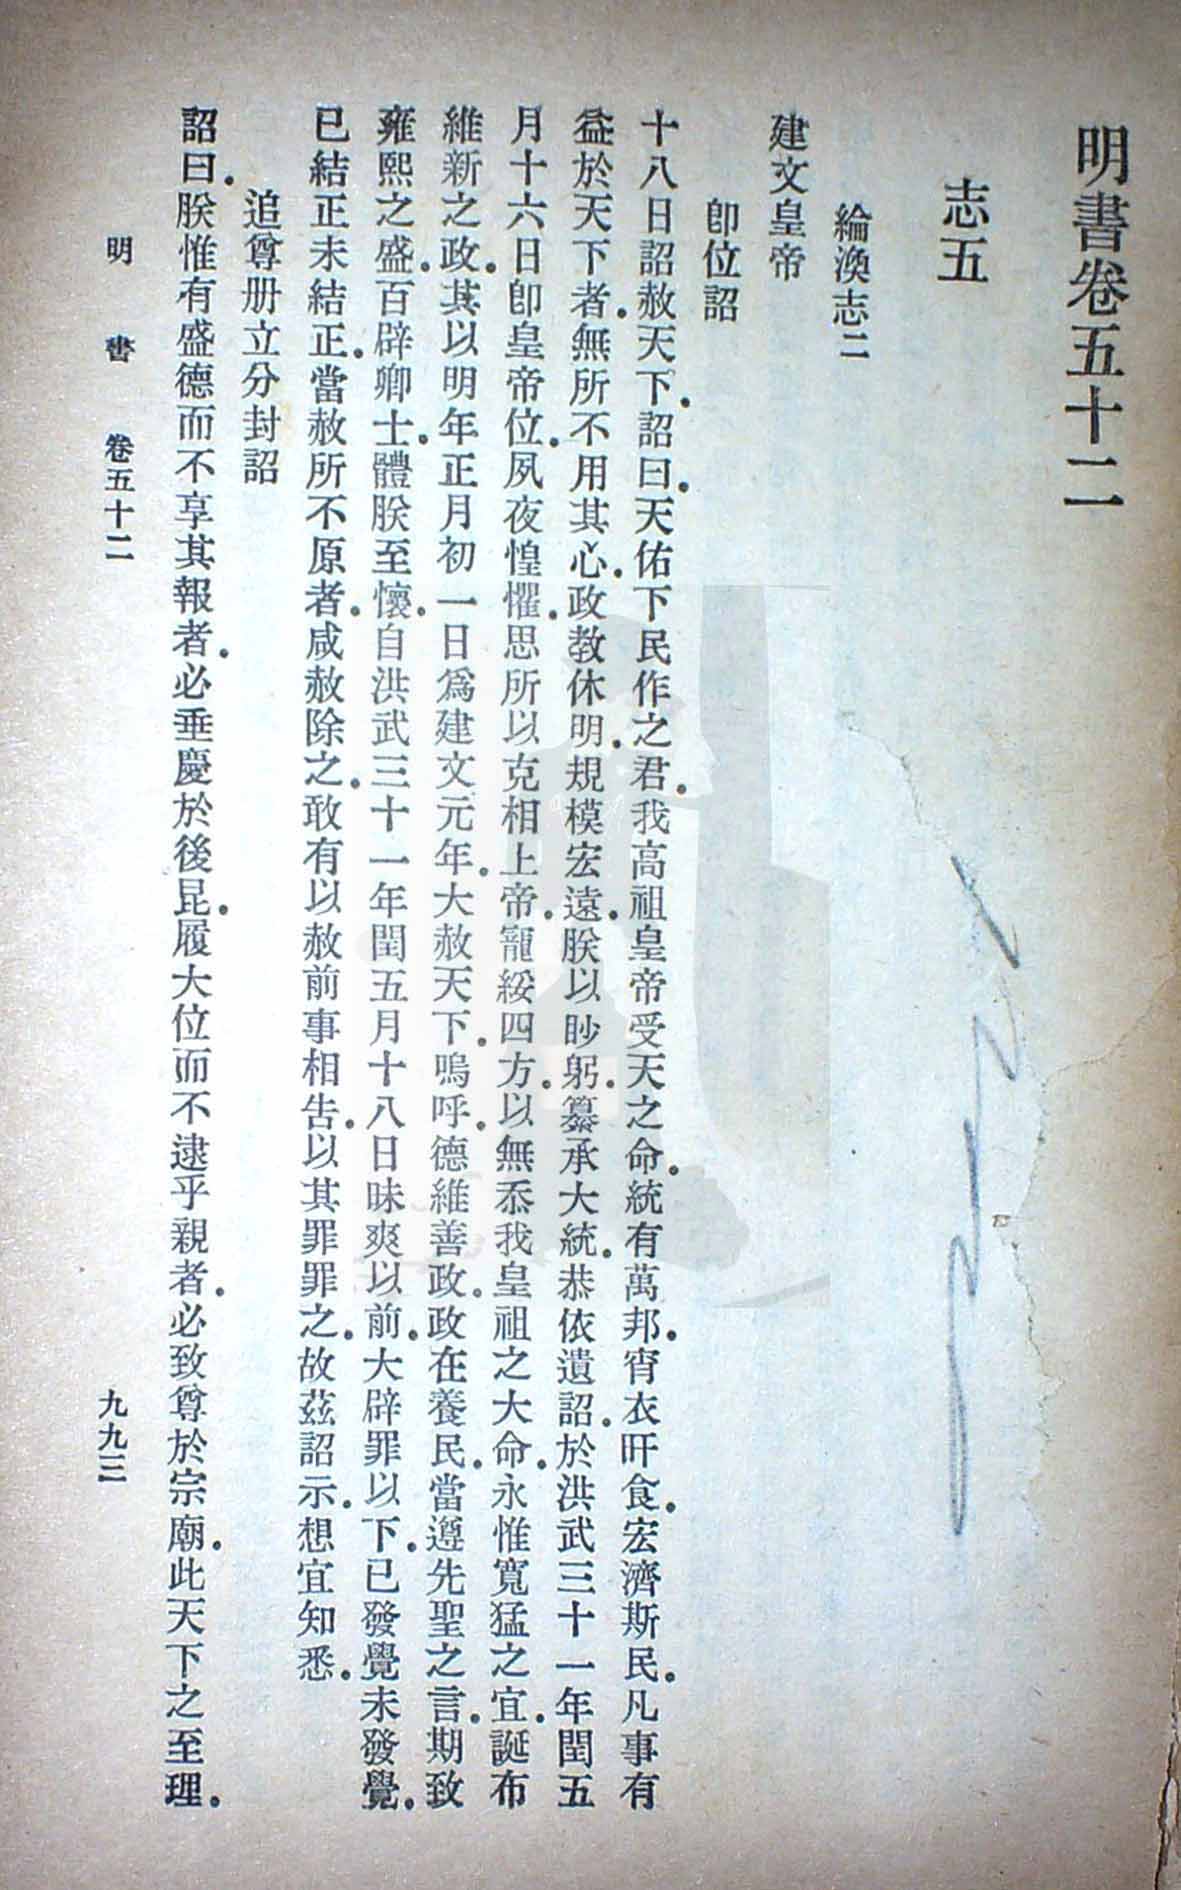 明書卷五十二
志五
綸渙志二
建文皇帝
卽位詔
十八日詔赦天下．詔曰．天佑下民作之君．我高祖皇帝受天之命．統有萬邦．宵衣旰食．宏濟斯民．凡事有
益於天下者．無所不用其心．政教休明．規模宏遠．朕以眇躬．纂承大統．恭依遺詔．於洪武三十一年閏五
月十六日卽皇帝位．夙夜惶懼．思所以克相上帝．寵綏四方．以無忝我皇祖之大命．永惟寬猛之宜．誕布
維新之政．其以明年正月初一日爲建文元年．大赦天下．嗚呼．德維善政．政在養民．當遵先聖之言．期致
雍熙之盛．百辟卿士．體朕至懷．自洪武三十一年閏五月十八日昧爽以前．大辟罪以下．已發覺未發覺．
已結正未結正．當赦所不原者．咸赦除之．敢有以赦前事相告．以其罪罪之．故茲詔示．想宜知悉．
追尊册立分封詔
詔曰．朕惟有盛德而不享其報者．必垂慶於後昆．履大位而不逮乎親者．必致尊於宗廟．此天下之至理．
明書 卷五十二 九九三